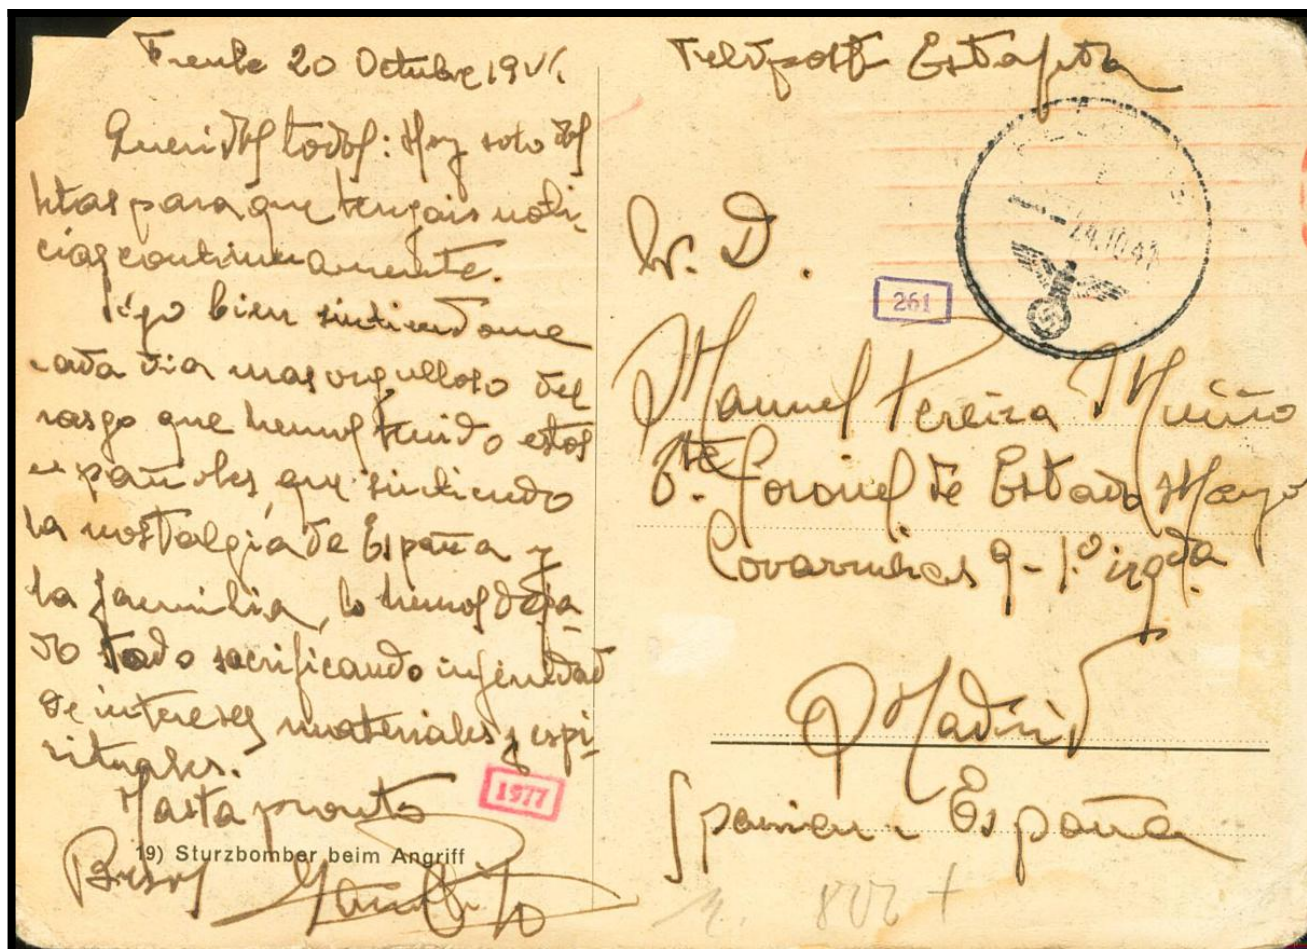 Frente 20 Octubre 1941.
Queridos todos: Hoy solo dos
letras para que tengais noti-
cias continuamente.
Sigo bien sintiendome
cada dia mas orgulloso del
rasgo que hemos tenido estos
españoles, que sintiendo
la nostalgia de España y
la familia, lo hemos deja
do todo sacrificando infinidad
de intereses materiales y espi-
rituales.
Hasta pronto
Besos
19) Sturzbomber beim Angriff
1977
Feldpost Estafeta
24.10.41
Sr. D.
261
Manuel Pereira Muiño
Tte. Coronel de Estado Mayor
Covarrubias 9-1º izqda.
Madrid
Spanien - España